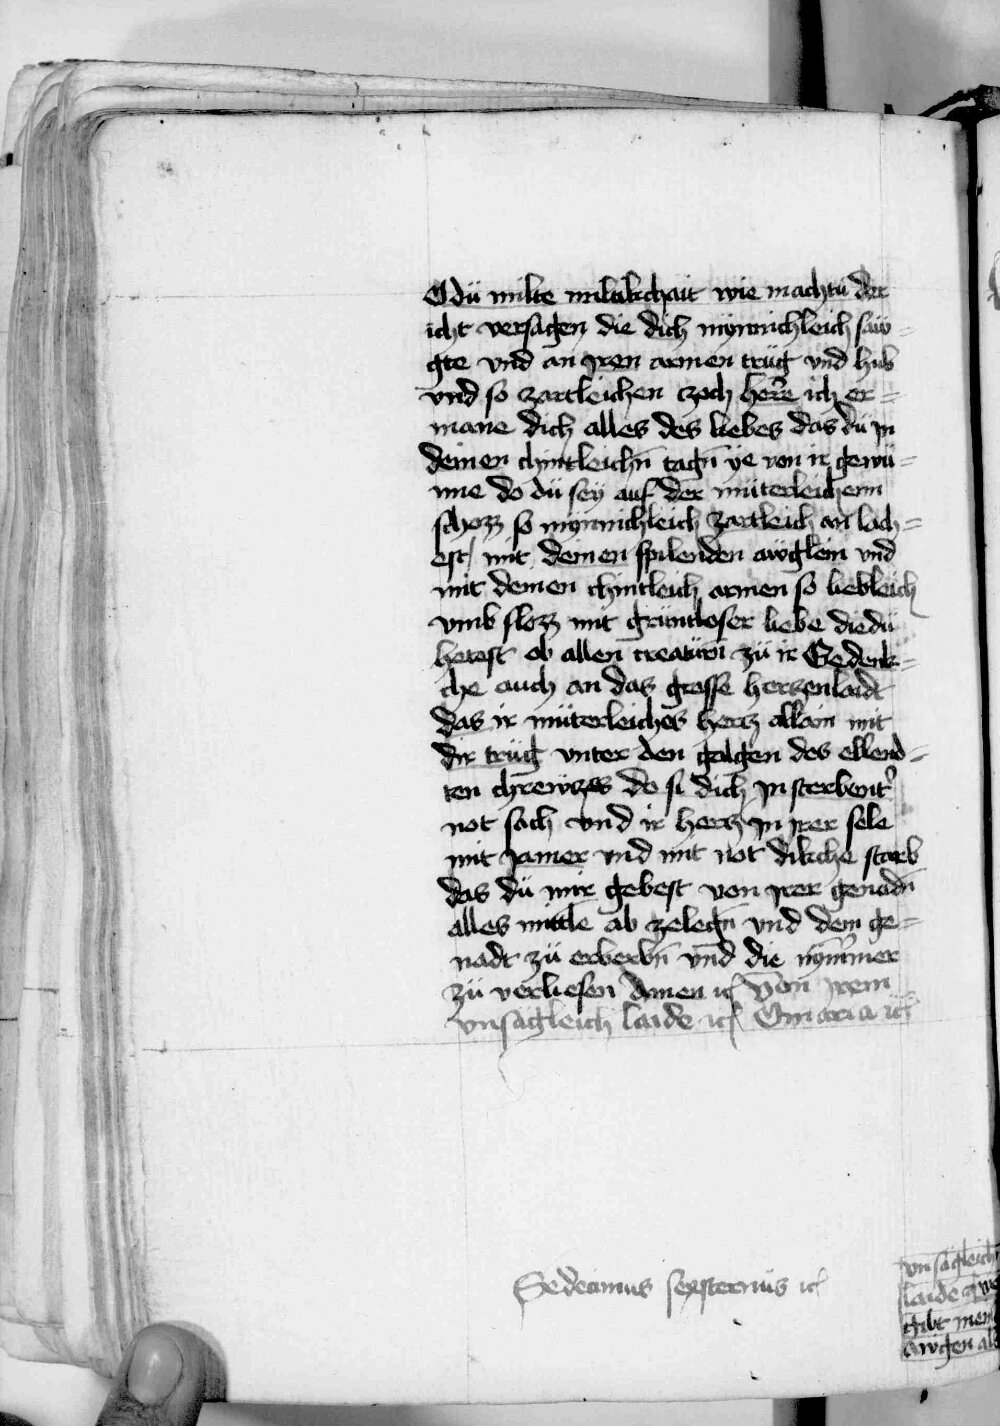 O dü milte miltikchait wie machtu der
icht versagen die dich mynnichleich säw=
gte vnd an yren armen trüg vnd hub
vnd so zartleichen czoch herre ich er=
mane dich alles des liebes das dü yn
deinen chintleichn̄ tagn̄ ye von ir gewü=
nne do dü sey auf der müterleichenn
schozz so mynnichleich zartleich an lach=
est mit deinen spilenden awglein vnd
mit deinen chintleich armen so liebleich
vmb slozz mit gruntloser liebe die dü
hetest ob allen creaturn̄ zü ir Gedenk=
che auch an das grosse herczenlaidt
das ir müterleiches hertz allain mit
dir trüg vnter den galgen des ellend=
ten chrewczs do si dich yn sterbent̾
not sach vnd ir hertz yn yrer sele
mit jamer vnd mit not dikche starb
das dü mir gebest von yrer genadn̄
alles mittle ab zelegn̄ vnd dein ge=
nadt zü erberbn̄ vnd die nym̄mer
zü verliesen Amen ic Von yrem
vnsägleich laide ic O maria ic
Sedecimus sexsternius ic
vnsägleich
laide
gibt mein
awgen al